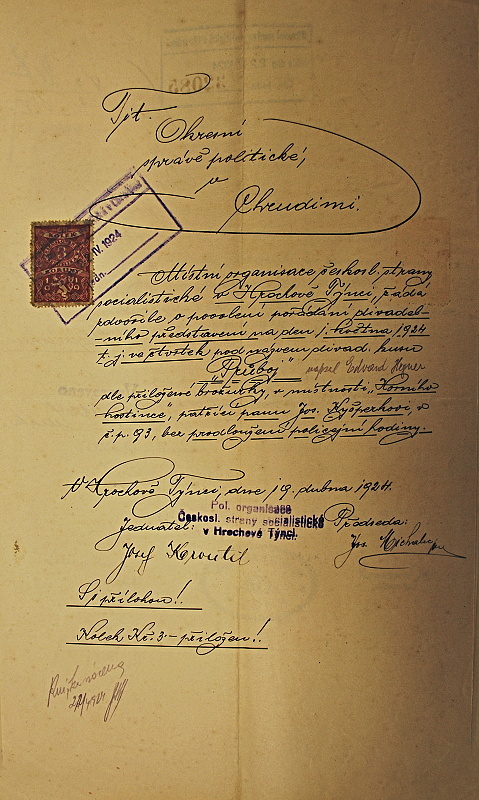 Tjt.
Okresní
správě politické,
v
Chrudimi.
IV. 1924
Místní organisace českosl. strany
socialistické v Hrochově Týnci, žádá
zdvořile o povolení pořádání divadel-
ního představení na den 1. května 1924
t. j. ve čtvrtek pod názvem divad. kusu
"Příboj" napsal Edvard
dle přiložené brožurky, v místnosti "Horního
hostince", patřící panu Jos. Kyšperkovi, v
č.p. 93, bez prodloužení policejní hodiny.
V Hrochově Týnci, dne 19. dubna 1924.
Pol. organisace
Českosl. strany socialistické
v Hrochově Týnci.
Jednatel:
Předseda:
Josef Kroutil
Jos.
S přílohou!
Kolek Kč. 3 - přiložen!!